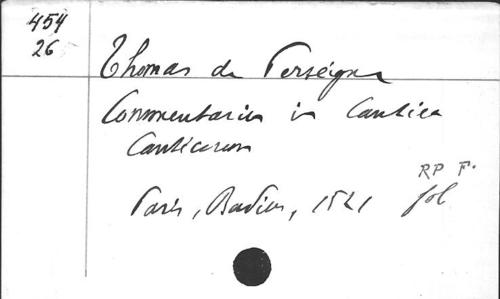 454
26
Thomas de Perseigne
Commentarius in Cantica
Canticorum
RP F.
Paris, Badius, 1521 fol